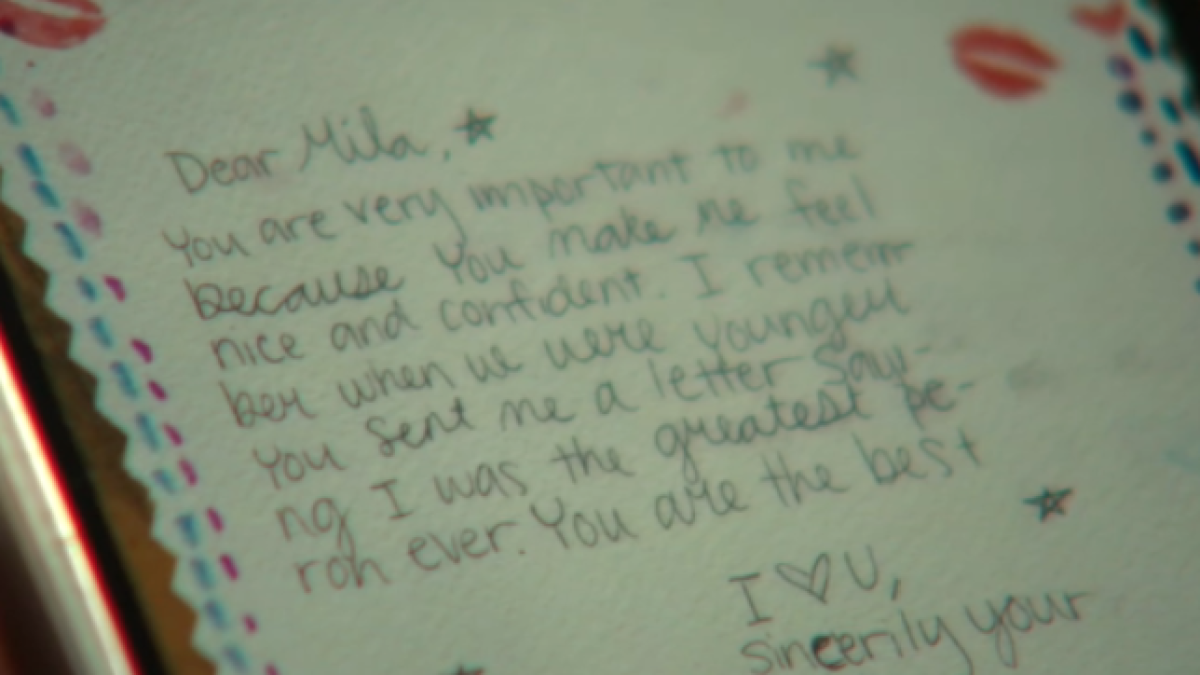 Dear Mila,
You are very important to me
because you make me feel
nice and confident. I remem-
ber when we were younger
you sent me a letter sayi-
ng I was the greatest pe-
ron ever. You are the best
I ♡ U,
sincerily your